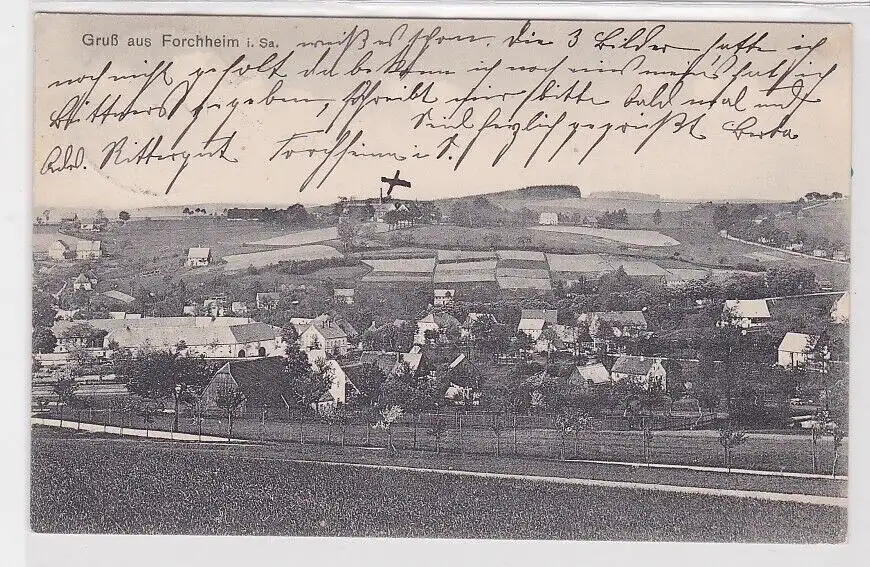 Gruß aus Forchheim i. Sa. weiß es schon. Die 3 Bilder hatte ich
noch nicht geholt da bekomme ich noch eins meins hat ich
gegeben, schreibt mir bitte bald mal und
Seid herzlich gegrüßt Berta
Adr. Rittergut Forchheim i S.